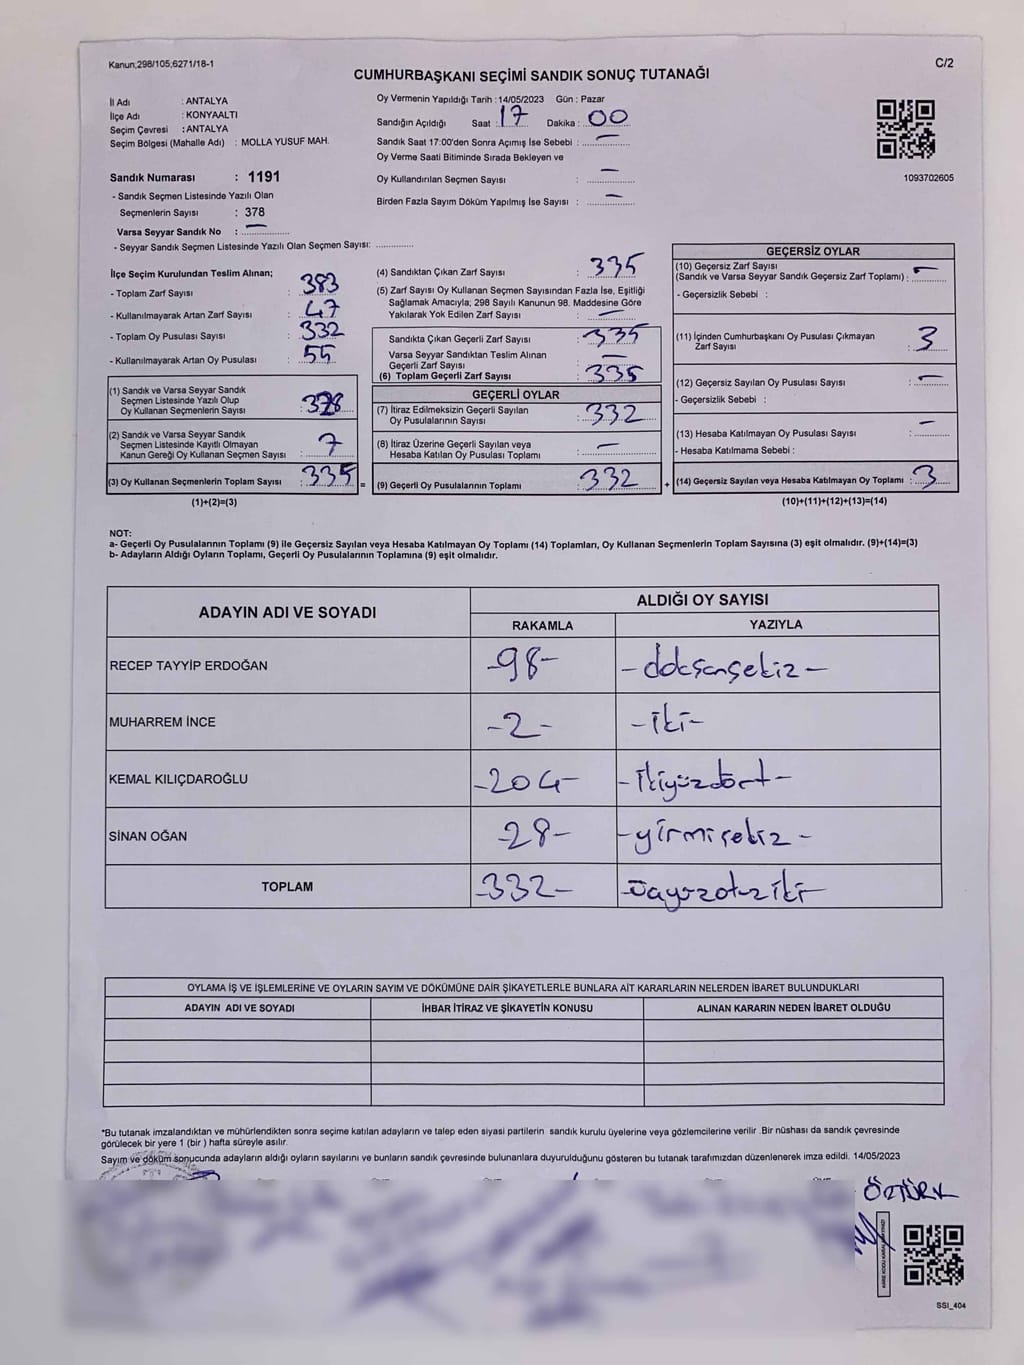 Kanun,298/105;6271/18-1
C/2
CUMHURBAŞKANI SEÇİMİ SANDIK SONUÇ TUTANAĞI
İl Adı : ANTALYA
İlçe Adı : KONYAALTI
Seçim Çevresi : ANTALYA
Seçim Bölgesi (Mahalle Adı) : MOLLA YUSUF MAH.
Oy Vermenin Yapıldığı Tarih : 14/05/2023 Gün : Pazar
Sandığın Açıldığı Saat : 17 Dakika : 00
Sandık Saat 17:00'den Sonra Açımış İse Sebebi : —
Oy Verme Saati Bitiminde Sırada Bekleyen ve
Oy Kullandırılan Seçmen Sayısı : —
Birden Fazla Sayım Döküm Yapılmış İse Sayısı : —
1093702605
Sandık Numarası : 1191
- Sandık Seçmen Listesinde Yazılı Olan
Seçmenlerin Sayısı : 378
Varsa Seyyar Sandık No : —
- Seyyar Sandık Seçmen Listesinde Yazılı Olan Seçmen Sayısı: .............
İlçe Seçim Kurulundan Teslim Alınan;
- Toplam Zarf Sayısı : 383
- Kullanılmayarak Artan Zarf Sayısı : 47
- Toplam Oy Pusulası Sayısı : 332
- Kullanılmayarak Artan Oy Pusulası : 55
(1) Sandık ve Varsa Seyyar Sandık
Seçmen Listesinde Yazılı Olup
Oy Kullanan Seçmenlerin Sayısı :
(2) Sandık ve Varsa Seyyar Sandık
Seçmen Listesinde Kayıtlı Olmayan
Kanun Gereği Oy Kullanan Seçmen Sayısı : 7
(3) Oy Kullanan Seçmenlerin Toplam Sayısı : 335 =
(1)+(2)=(3)
(4) Sandıktan Çıkan Zarf Sayısı : 335
(5) Zarf Sayısı Oy Kullanan Seçmen Sayısından Fazla İse, Eşitliği
Sağlamak Amacıyla; 298 Sayılı Kanunun 98. Maddesine Göre
Yakılarak Yok Edilen Zarf Sayısı : —
Sandıkta Çıkan Geçerli Zarf Sayısı : 335
Varsa Seyyar Sandıktan Teslim Alınan
Geçerli Zarf Sayısı : —
(6) Toplam Geçerli Zarf Sayısı : 335
GEÇERLİ OYLAR
(7) İtiraz Edilmeksizin Geçerli Sayılan
Oy Pusulalarının Sayısı : 332
(8) İtiraz Üzerine Geçerli Sayılan veya
Hesaba Katılan Oy Pusulası Toplamı : —
(9) Geçerli Oy Pusulalarının Toplamı : 332 +
GEÇERSİZ OYLAR
(10) Geçersiz Zarf Sayısı
(Sandık ve Varsa Seyyar Sandık Geçersiz Zarf Toplamı) : —
- Geçersizlik Sebebi :
(11) İçinden Cumhurbaşkanı Oy Pusulası Çıkmayan
Zarf Sayısı : 3
(12) Geçersiz Sayılan Oy Pusulası Sayısı : —
- Geçersizlik Sebebi :
(13) Hesaba Katılmayan Oy Pusulası Sayısı : —
- Hesaba Katılmama Sebebi :
(14) Geçersiz Sayılan veya Hesaba Katılmayan Oy Toplamı : 3
(10)+(11)+(12)+(13)=(14)
NOT:
a- Geçerli Oy Pusulalarının Toplamı (9) ile Geçersiz Sayılan veya Hesaba Katılmayan Oy Toplamı (14) Toplamları, Oy Kullanan Seçmenlerin Toplam Sayısına (3) eşit olmalıdır. (9)+(14)=(3)
b- Adayların Aldığı Oyların Toplamı, Geçerli Oy Pusulalarının Toplamına (9) eşit olmalıdır.
ADAYIN ADI VE SOYADI
ALDIĞI OY SAYISI
RAKAMLA YAZIYLA
RECEP TAYYİP ERDOĞAN -98- -doksansekiz-
MUHARREM İNCE -2- -iki-
KEMAL KILIÇDAROĞLU -204- -ikiyüzdört-
SİNAN OĞAN 28- -yirmisekiz-
TOPLAM -332- -üçyüzotuziki-
OYLAMA İŞ VE İŞLEMLERİNE VE OYLARIN SAYIM VE DÖKÜMÜNE DAİR ŞİKAYETLERLE BUNLARA AİT KARARLARIN NELERDEN İBARET BULUNDUKLARI
ADAYIN ADI VE SOYADI İHBAR İTİRAZ VE ŞİKAYETİN KONUSU ALINAN KARARIN NEDEN İBARET OLDUĞU
*Bu tutanak imzalandıktan ve mühürlendikten sonra seçime katılan adayların ve talep eden siyasi partilerin sandık kurulu üyelerine veya gözlemcilerine verilir .Bir nüshası da sandık çevresinde
görülecek bir yere 1 (bir ) hafta süreyle asılır.
Sayım ve döküm sonucunda adayların aldığı oyların sayılarını ve bunların sandık çevresinde bulunanlara duyurulduğunu gösteren bu tutanak tarafımızdan düzenlenerek imza edildi. 14/05/2023
ÖZTÜRK
SSI_404